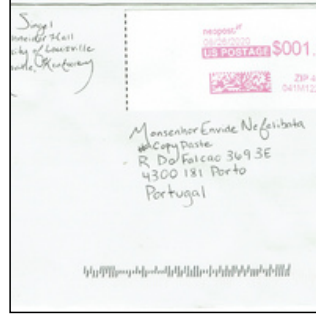 Singel
Hall
city of Louisville
Kentucky
neopost
08/26/2020
US POSTAGE $001.
ZIP 4
041M12
Monsenhor Envide Nefelibata
Copy Paste
R Do Falcao 369 3E
4300 181 Porto
Portugal